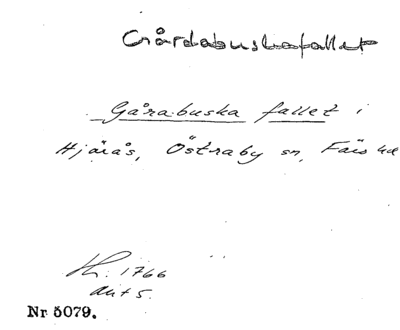 Gårdabuskafallet
Gårabuska fallet i
Hjärås, Östraby sn, Färs hd
1766
akt 5.
Nr 5079.